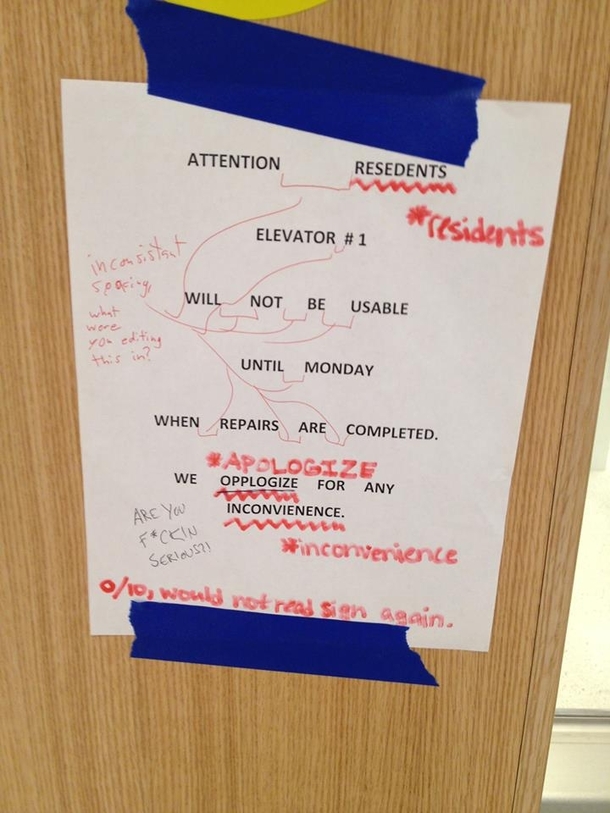 ATTENTION RESEDENTS
*residents
ELEVATOR # 1
inconsistant
spacing,
what
were
you editing
this in?
WILL NOT BE USABLE
UNTIL MONDAY
WHEN REPAIRS ARE COMPLETED.
*APOLOGIZE
WE OPPLOGIZE FOR ANY
INCONVIENENCE.
ARE YOU
F*CKIN
SERIOUS?!
*inconvenience
0/10, would not read sign again.